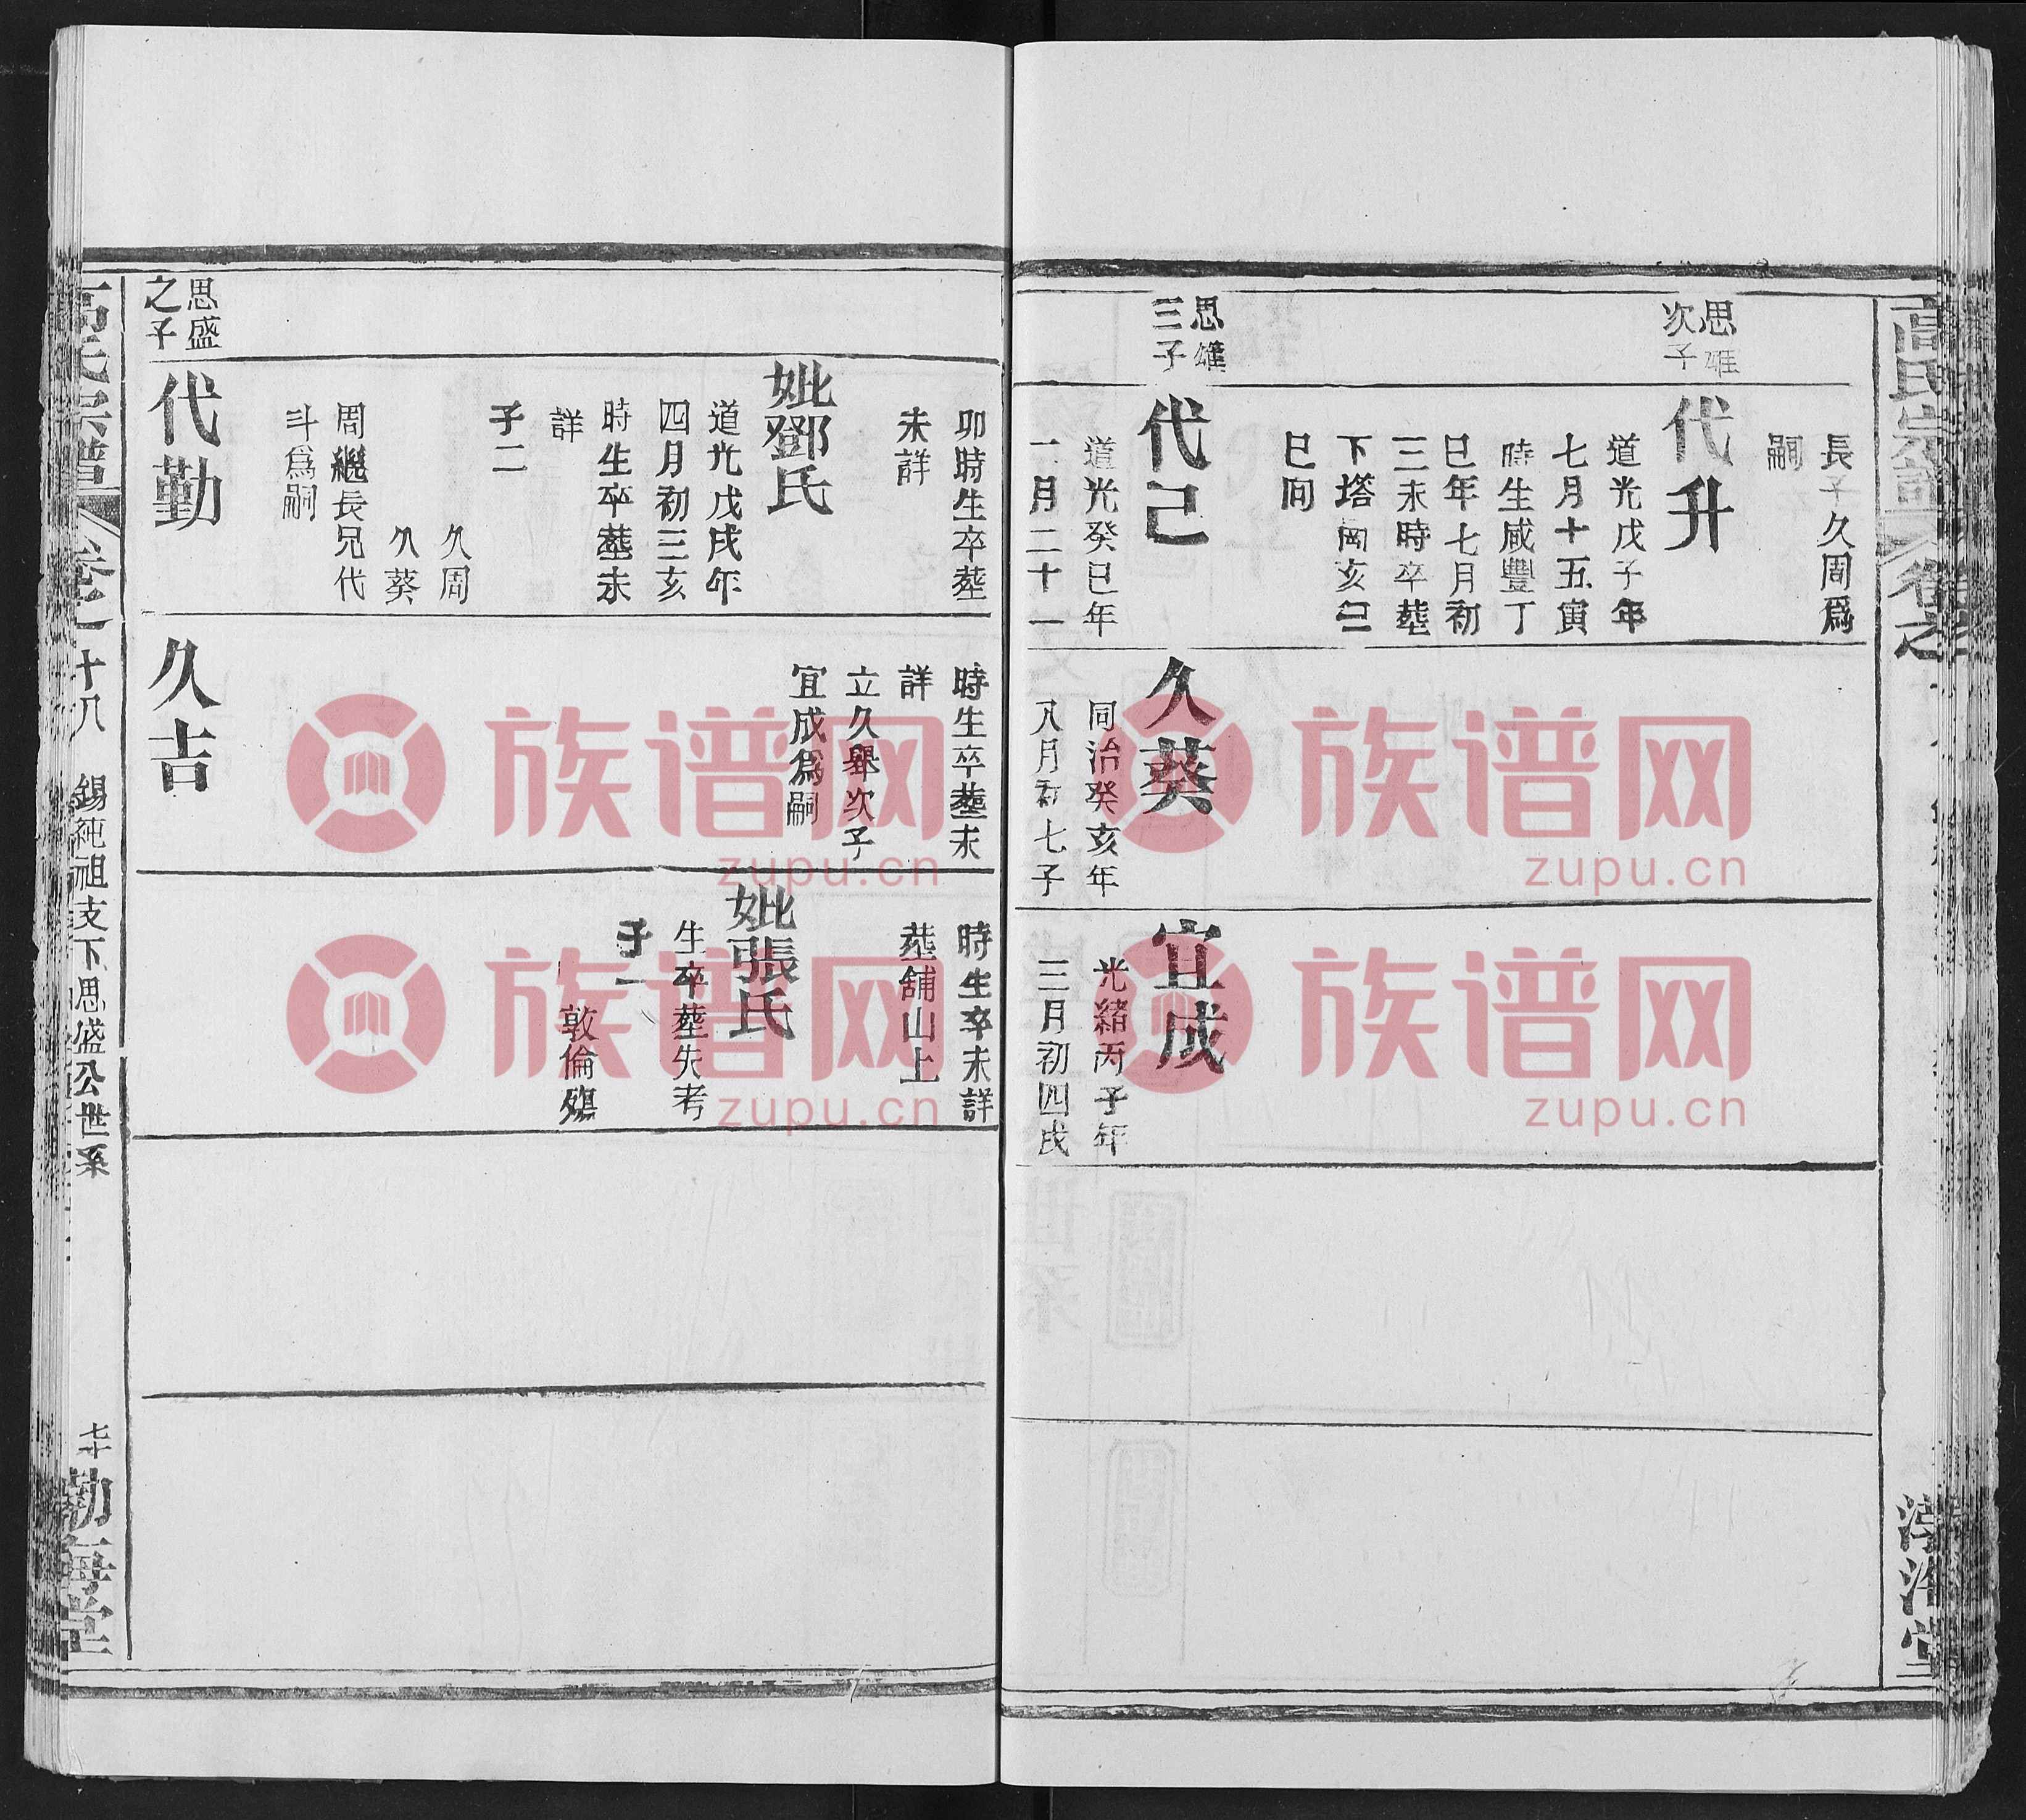 高氏宗譜
卷之
長子久周爲
嗣
思雄
次子
代升
道光戊子年
七月十五寅
時生咸豐丁
巳年七月初
三未時卒塟
下塔
亥巳
巳向
思雄
三子
代己
道光癸巳年
二月二十一
久葵
同治癸亥年
八月初七子
宜成
光緒丙子年
三月初四戌
卯時生卒塟
未詳
妣鄧氏
道光戊戌年
四月初三亥
時生卒塟未
詳
子二
久周
久葵
周繼長兄代
斗爲嗣
時生卒塟未
詳
立久舉次子
宜成爲嗣
時生卒未詳
塟舖山上
妣張氏
生卒塟失考
子一
敦倫殤
思盛
之子
代勤
久吉
高氏宗譜
卷之十八
錫純祖支下思盛公世系
七十
渤海堂
渤海堂
族谱网
zupu.cn
族谱网
zupu.cn
族谱网
zupu.cn
族谱网
zupu.cn